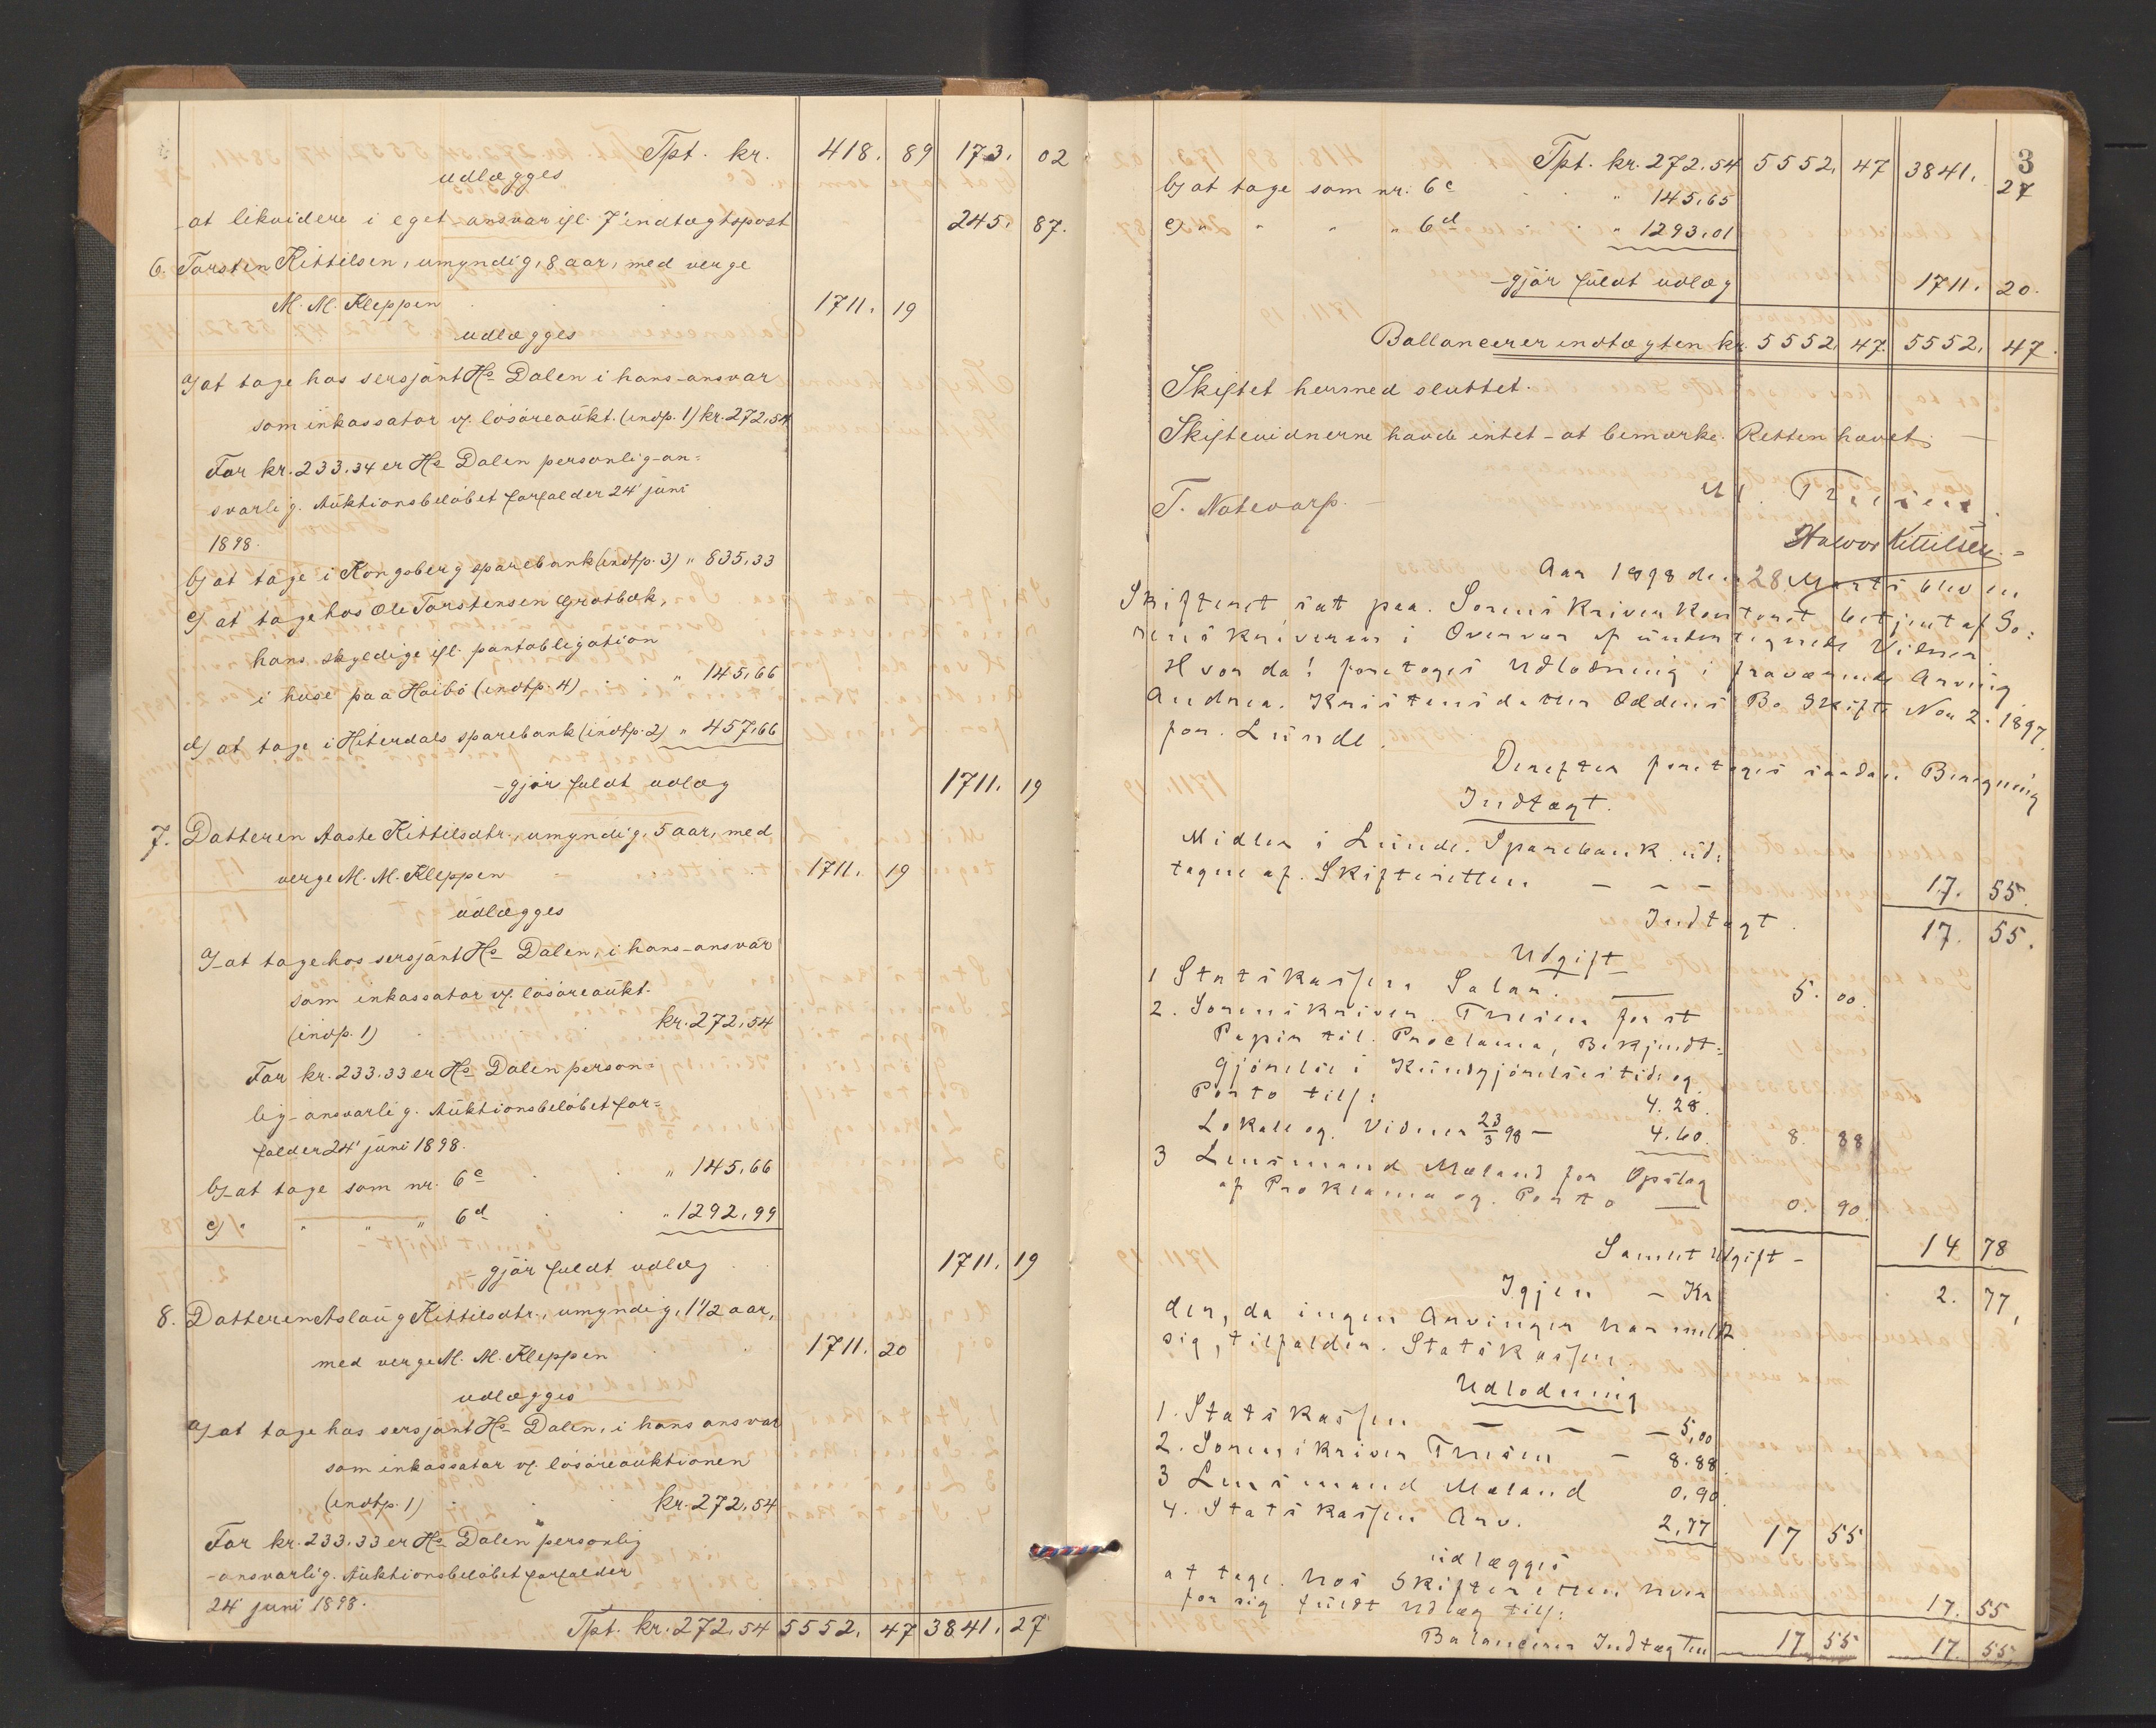 Tpt. kr. 418. 89 173. 02
udlægges
at likvidere i eget ansvar ifl. 7' indtægtspost 245. 87.
6. Torsten Kittilsen, umyndig, 8 aar, med verge
M. M. Kleppen 1711. 19
udlægges
a) at tage hos sersjant Hs Dalen i hans ansvar
som inkassator v. løsøreaukt. (indp. 1) kr. 272,54
For kr. 233.34 er Hs Dalen personlig an=
svarlig. Auktionsbeløbet forfalder 24' juni
1898.
b) at tage i Kongsberg sparebank (indtp. 3) " 835,33
c) at tage hos Ole Torstensen Grotbæk,
hans skyldige ifl. pantobligation
i huse paa Haibø (indtp. 4) " 145,66
d) at tage i Hiterdals sparebank (indtp. 2) " 457,66
gjør fuldt udlæg 1711. 19
7. Datteren Aaste Kittilsdtr., umyndig, 5 aar, med
verge M. M. Kleppen 1711. 19
udlægges
a) at tage hos sersjant Hs Dalen, i hans ansvar
som inkassator v. løsøreaukt.
(indp. 1) kr. 272,54
For kr. 233.33 er Hs Dalen person=
lig ansvarlig. Auktionsbeløbet for=
falder 24' juni 1898.
b) at tage som nr. 6c " 145,66
c) " " " " 6d " 1292,99
gjør fuldt udlæg 1711. 19
8. Datteren Aslaug Kittilsdtr., umyndig, 1 1/2 aar,
med verge M. M. Kleppen 1711. 20
udlægges
a) at tage hos sersjant Hs Dalen, i hans ansvar
som inkassator v. løsøreauktionen
(indtp. 1) kr. 272,54
For kr. 233.33 er Hs Dalen personlig
ansvarlig. Auktionsbeløbet forfalder
24' juni 1898.
Tpt. kr. 272,54 5552. 47 3841. 27
3
Tpt. kr. 272,54 5552. 47 3841. 27
b) at tage som nr. 6c " 145,65
c) " " " " 6d " 1293,01
gjør fuldt udlæg 1711. 20.
Ballancerer indtægten kr. 5552. 47. 5552. 47.
Skiftet hermed sluttet.
Skiftevidnerne havde intet at bemærke. Retten hævet.
T. Natevarp.
Halvor Kittilsen
Aar 1898 den 28 Marts blev en
Skifteret sat paa Sorenskriverkontoret betjent af So=
renskriveren i Overvær af undertegnede Vidner.
Hvor da! foretoges Udlodning i fraværende Arving
Andrea Kristensdatter Oddens Bo Skifte No 2. 1897.
for Lunde.
Derefter foretoges saadan Beregning
Indtægt.
Midler i Lunde Sparebank ud=
tagne af Skifteretten - - - 17. 55.
Indtægt. 17. 55.
Udgift
1 Statskassen Salær. 5. 00.
2. Sorenskriver Tresen for st
Papir til Proclama, Bekjendt=
gjørelse i Kundgjørelsestide og
Porto tils: 4.28.
Lokale og Vidner 23/3 98 - 4.60. 8. 88
3 Lensmand Mæland for Opslag
af Proklama og Porto 0. 90.
Samlet Udgift - 14 78
Igjen - Kr 2. 77,
der, da ingen Arvinger har meldt
sig, tilfalder Statskassen.
Udlodning
1. Statskassen - - - 5,00
2. Sorenskriver Tresen - 8.88
3 Lensmand Mæland 0.90.
4. Statskassen Arv. 2,77 17 55
udlægges
at tage hos Skifteretten hver
for sig fuldt Udlæg tils: 17. 55
Balancerer Indtægten 17 55 17. 55